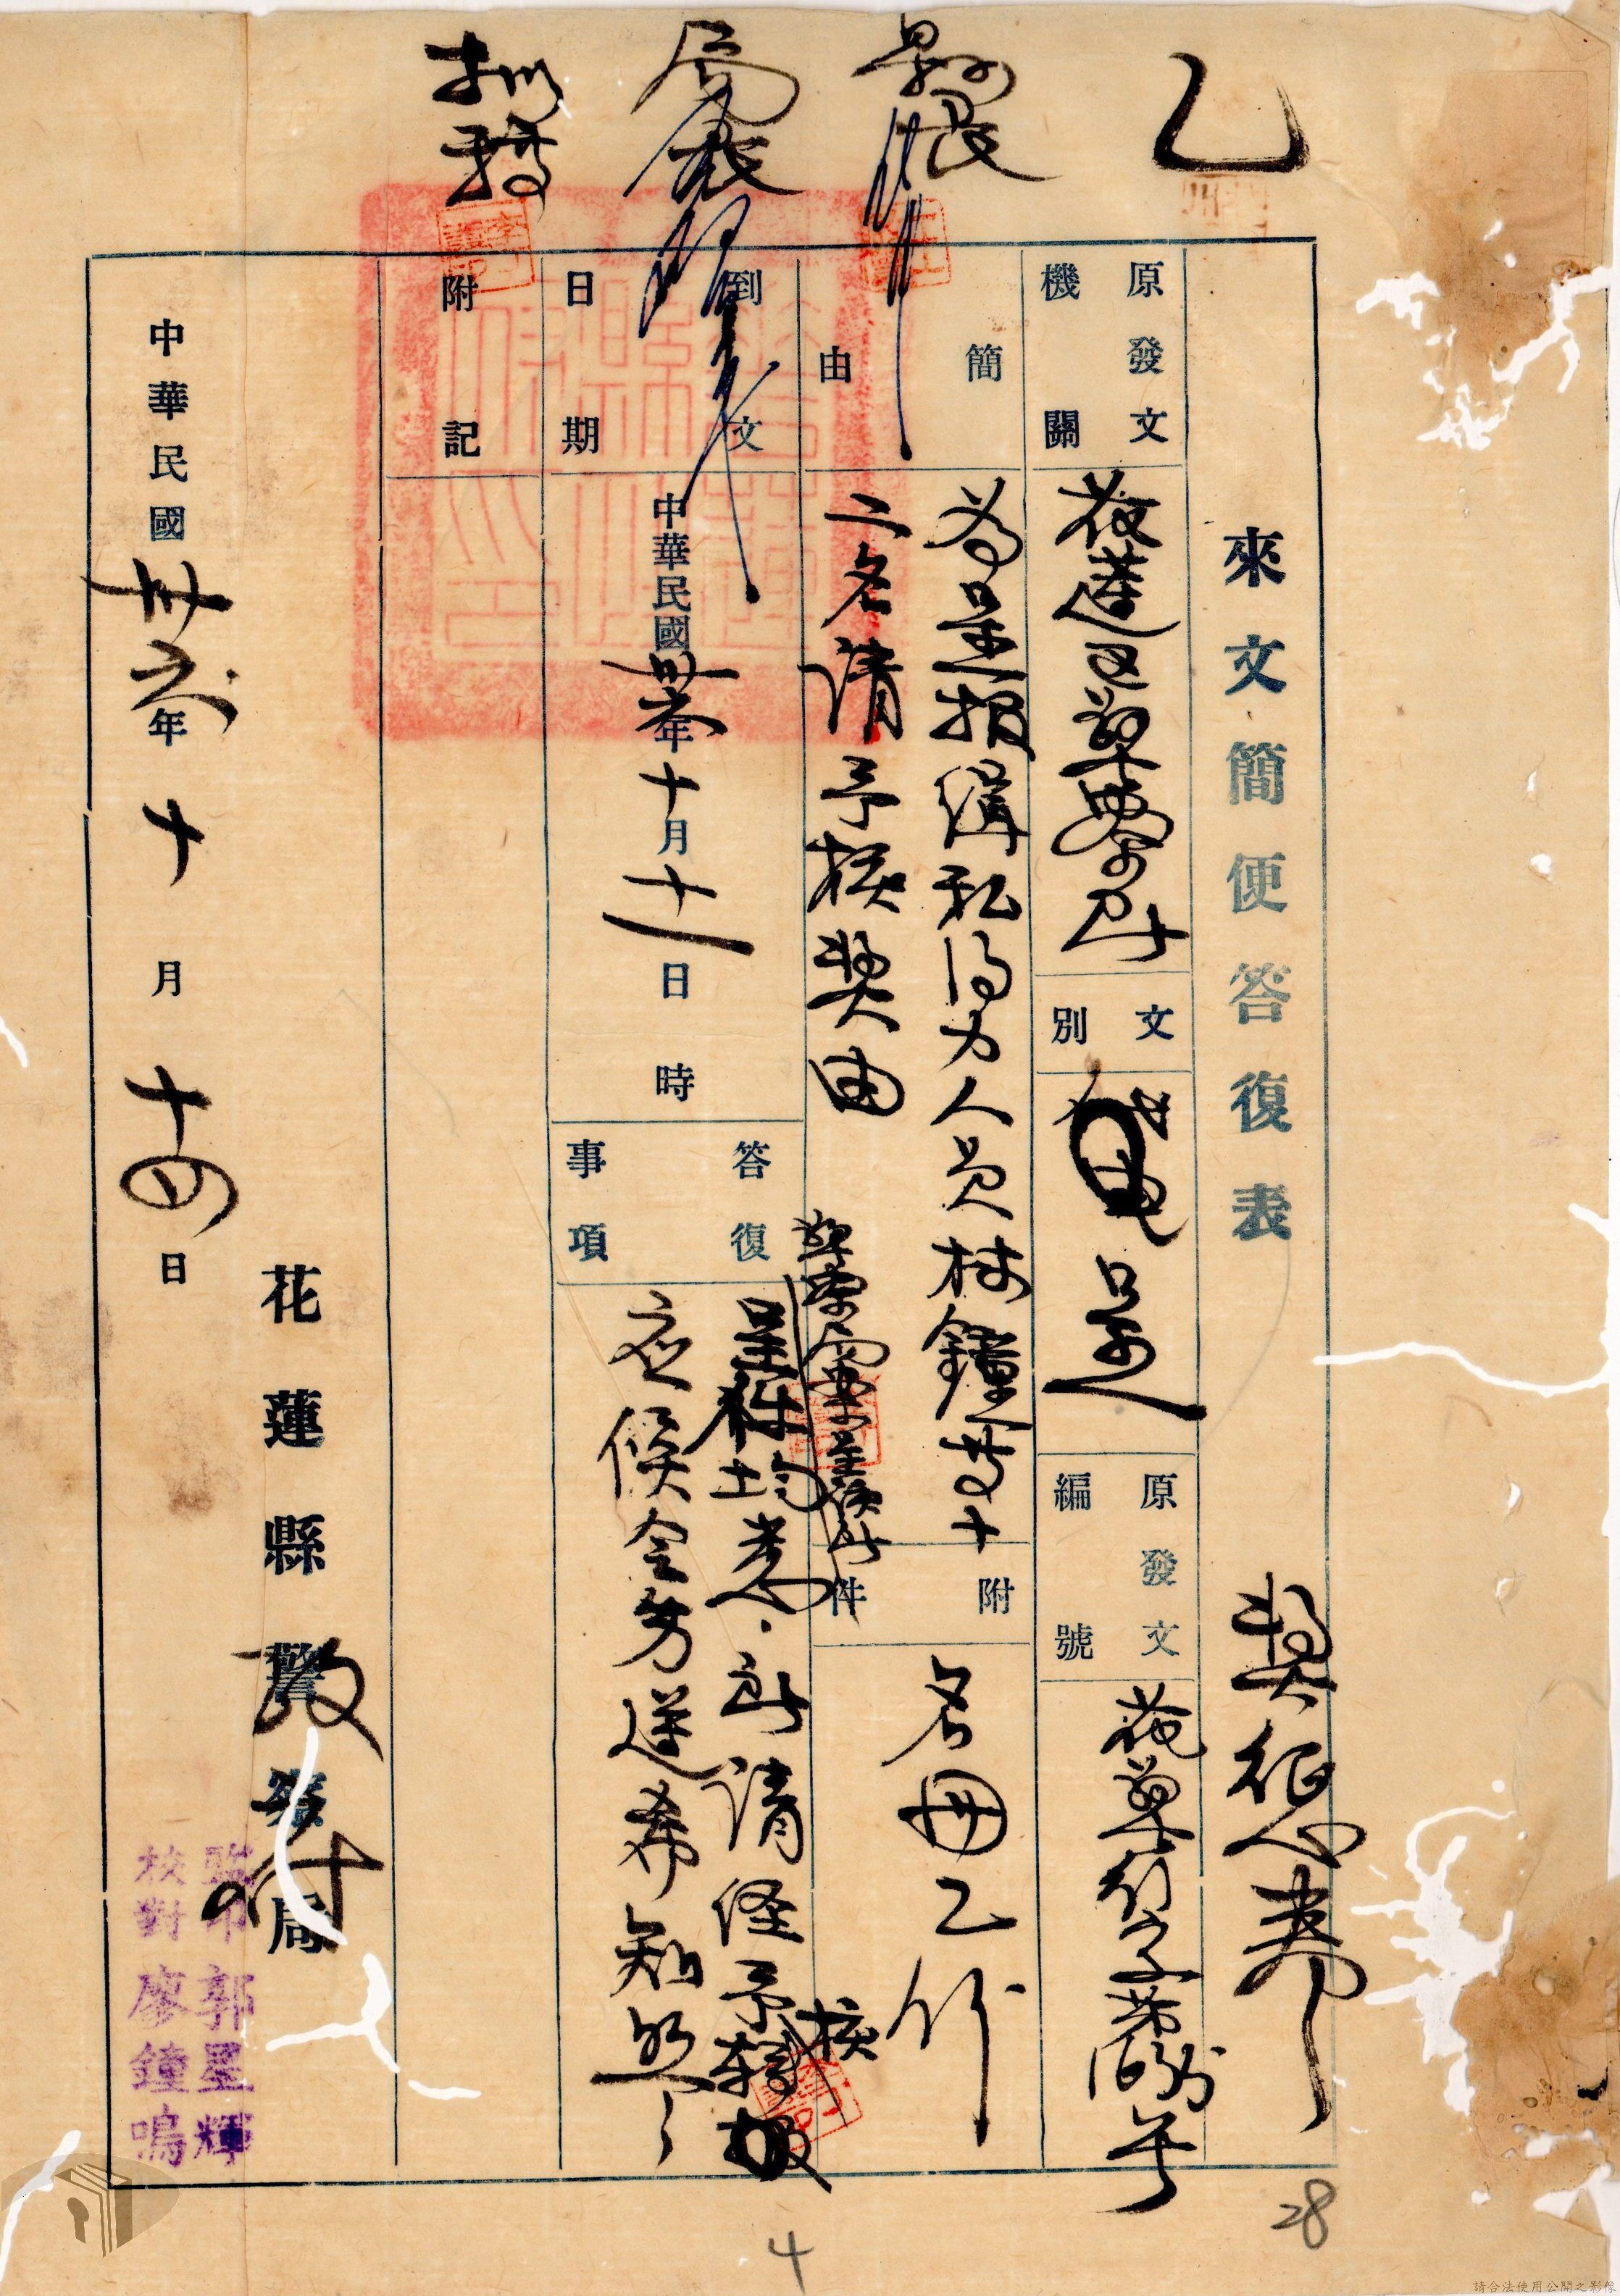 乙
縣長
局長
來文簡便答復表
獎懲卷
原發文機關
文別
呈
原發文編號
簡由
為呈報緝私得力人員林鐘等十
二名請予核獎由
附件
名冊乙份
到文日期
中華民國卅六年十月十一日 時
答復事項
呈件均悉所請經予轉報
核
應候令另遵希知照
附記
花蓮縣警察局
中華民國卅六年十月十四日
郭星輝
校對 廖鐘鳴
28
4
請合法使用公開之影像